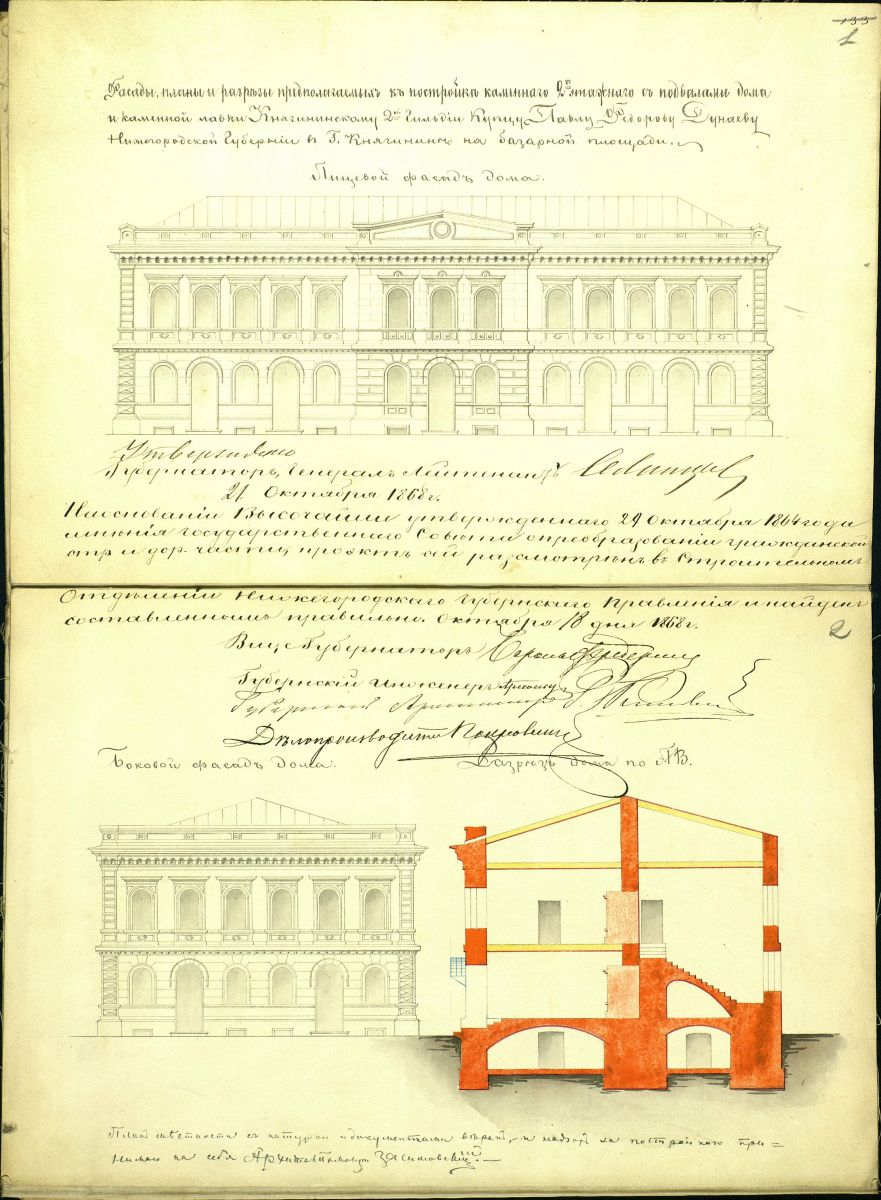 133
1
Фасады, планы и разрѣзы предполагаемыхъ къ постройкѣ каменнаго 2хъ этажнаго съ подвалами дома
и каменной лавки Княгининскому 2ой Гильдіи Купцу Павлу Ѳедорову Дунаеву
Нижегородской Губерніи въ Г. Княгининѣ на базарной площади.
Лицевой фасадъ дома.
Утверждено
Губернаторъ, Генералъ Лейтенантъ
21 Октября 1868 г.
На основаніи Высочайше утвержденнаго 24 Октября 1864 года
мнѣнія Государственнаго Совѣта о преобразованіи гражданской
стр. и дор. части, проэктъ сей разсмотрѣнъ въ Строительномъ
Отдѣленіи Нижегородскаго Губернскаго Правленія и найденъ
составленнымъ правильно. Октября 18 дня 1868 г.
2
Вице Губернаторъ
Губернскій Инженеръ
Губернскій Архитекторъ
Дѣлопроизводитель
Боковой фасадъ дома.
Разрѣзъ дома по АВ.
Планъ мѣстности съ натурой и документами вѣренъ, и надзоръ за постройкою при=
нимаю на себя Архитекторъ